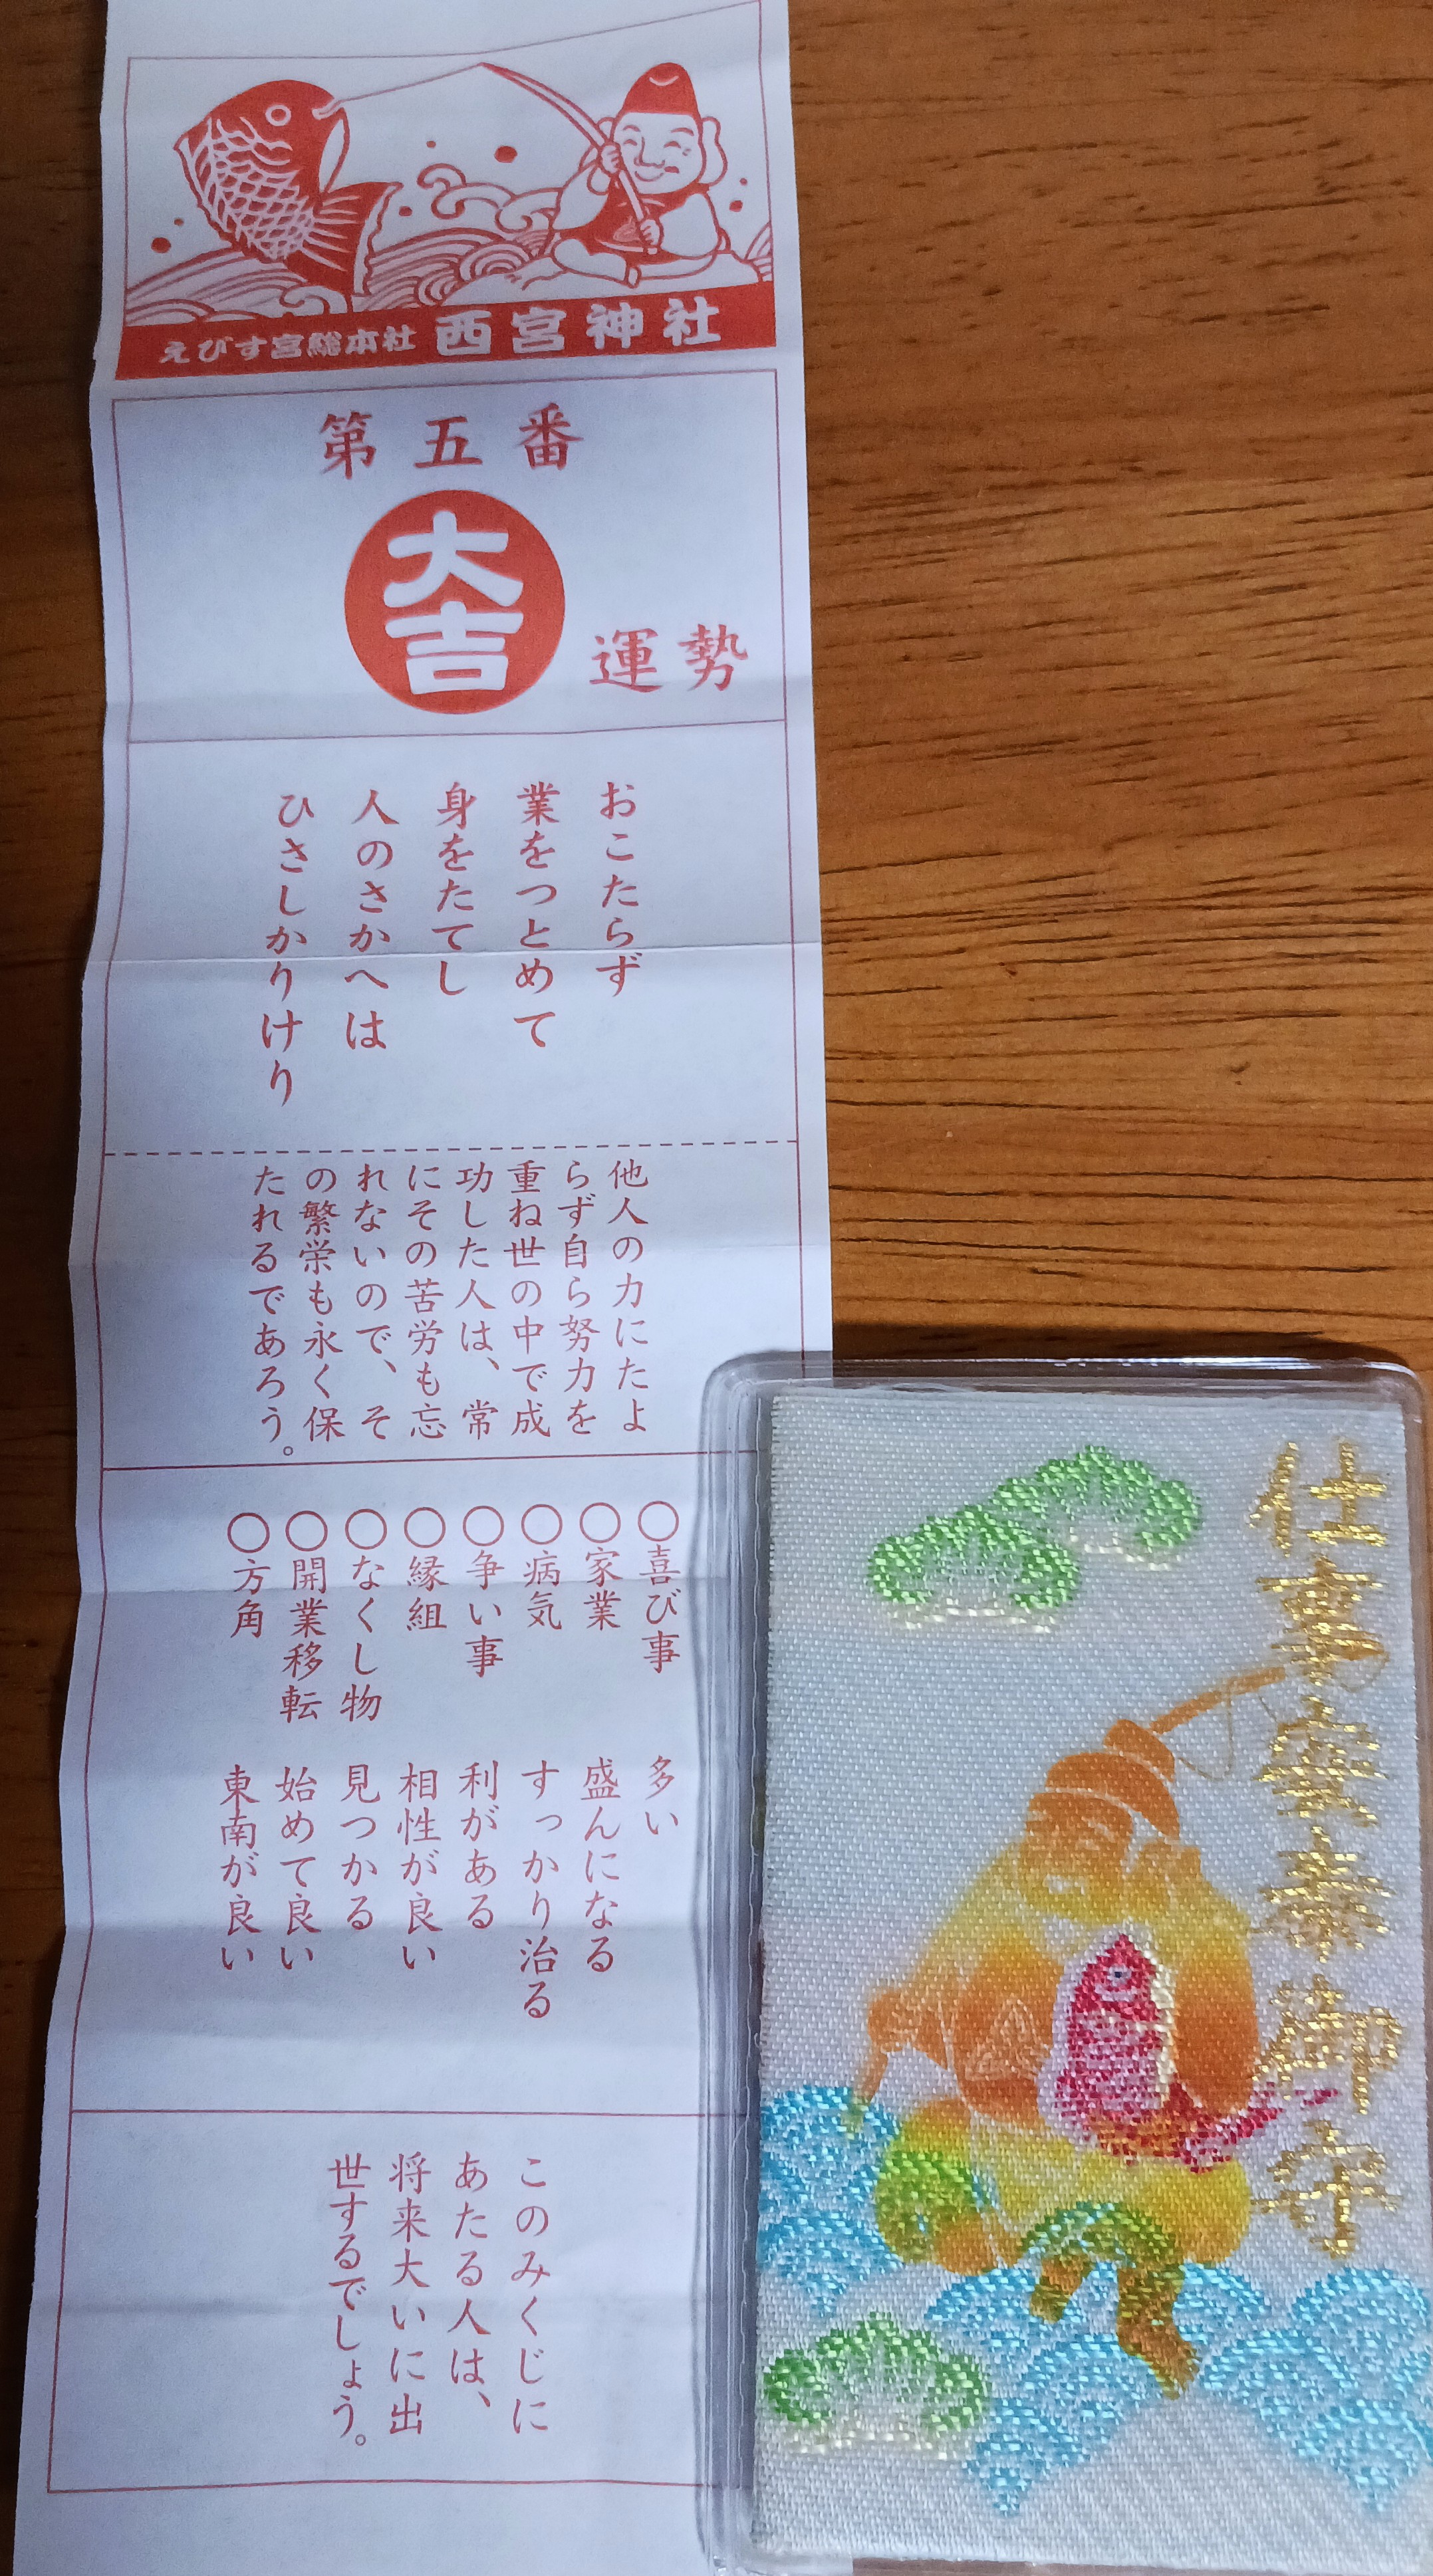 えびす宮総本社 西宮神社
第五番
大吉
運勢
おこたらず
業をつとめて
身をたてし
人のさかへは
ひさしかりけり
他人の力にたよ
らず自ら努力を
重ね世の中で成
功した人は、常
にその苦労も忘
れないので、そ
の繁栄も永く保
たれるであろう。
○喜び事 多い
○家業 盛んになる
○病気 すっかり治る
○争い事 利がある
○縁組 相性が良い
○なくし物 見つかる
○開業移転 始めて良い
○方角 東南が良い
このみくじに
あたる人は、
将来大いに出
世するでしょう。
仕事安泰御守